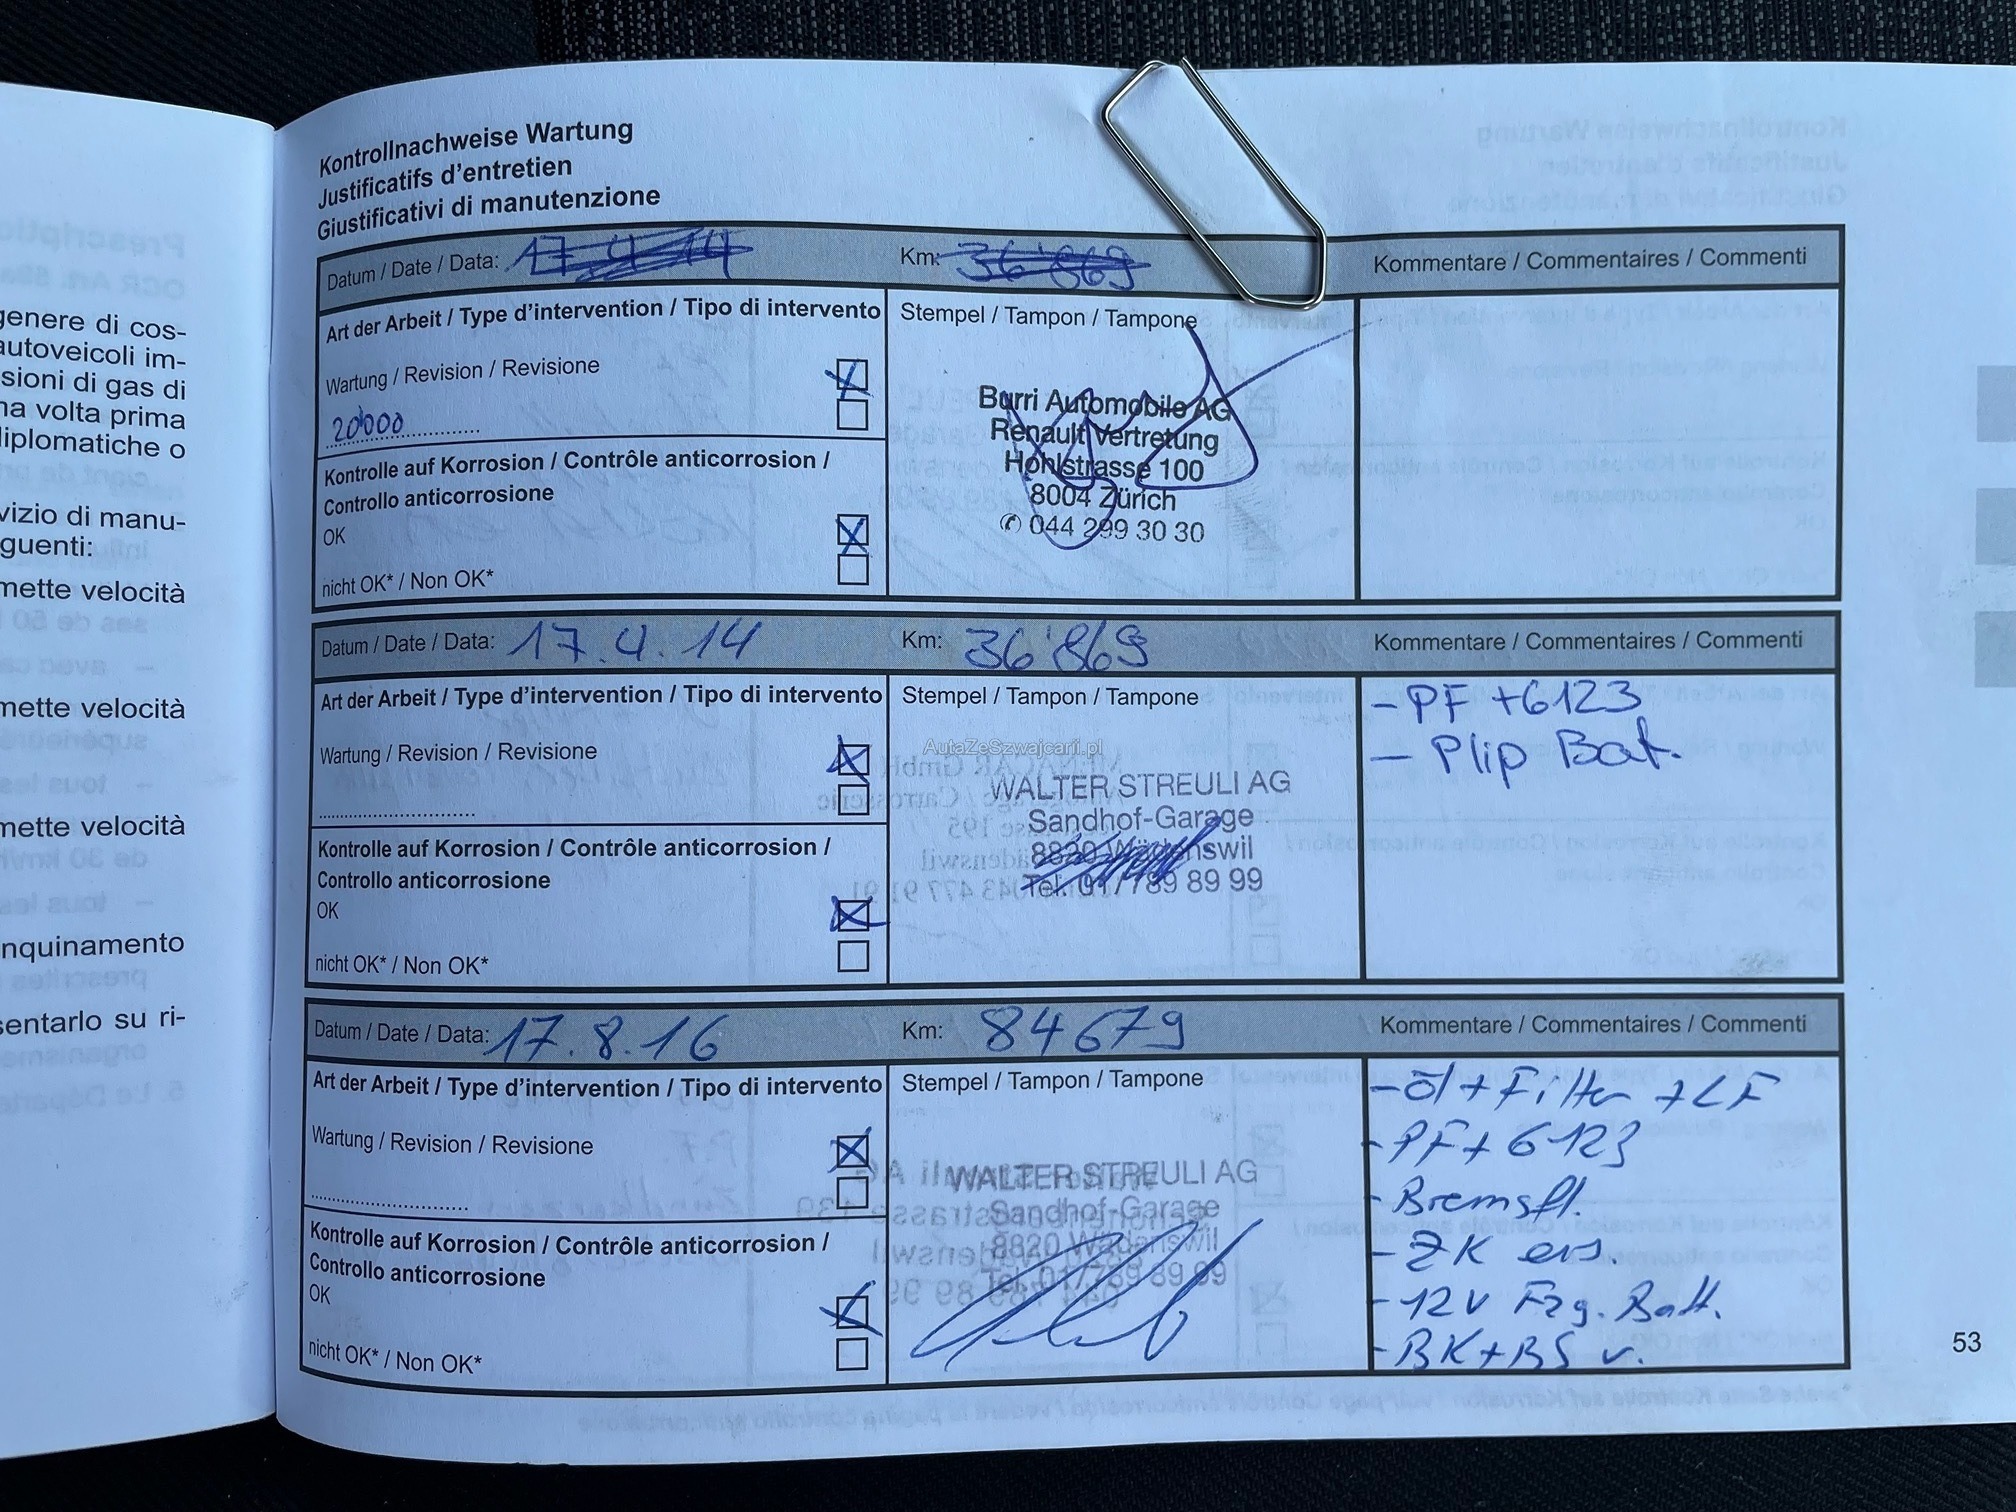 genere di cos-
autoveicoli im-
sioni di gas di
na volta prima
diplomatiche o
vizio di manu-
guenti:
mette velocità
mette velocità
mette velocità
nquinamento
sentarlo su ri-
Kontrollnachweise Wartung
Justificatifs d'entretien
Giustificativi di manutenzione
Datum / Date / Data: 17.4.14 Km: 36'869 Kommentare / Commentaires / Commenti
Art der Arbeit / Type d'intervention / Tipo di intervento Stempel / Tampon / Tampone
Wartung / Revision / Revisione
20'000
Kontrolle auf Korrosion / Contrôle anticorrosion /
Controllo anticorrosione
OK
nicht OK* / Non OK*
Burri Automobile AG
Renault Vertretung
Hohlstrasse 100
8004 Zürich
✆ 044 299 30 30
Datum / Date / Data: 17.4.14 Km: 36'869 Kommentare / Commentaires / Commenti
Art der Arbeit / Type d'intervention / Tipo di intervento Stempel / Tampon / Tampone
Wartung / Revision / Revisione
Kontrolle auf Korrosion / Contrôle anticorrosion /
Controllo anticorrosione
OK
nicht OK* / Non OK*
AutaZeSzwajcarii.pl
WALTER STREULI AG
Sandhof-Garage
8820 Wädenswil
Tel. 01/789 89 99
- PF + 6123
- Plip Bat.
Datum / Date / Data: 17.8.16 Km: 84679 Kommentare / Commentaires / Commenti
Art der Arbeit / Type d'intervention / Tipo di intervento Stempel / Tampon / Tampone
Wartung / Revision / Revisione
Kontrolle auf Korrosion / Contrôle anticorrosion /
Controllo anticorrosione
OK
nicht OK* / Non OK*
WALTER STREULI AG
Sandhof-Garage
8820 Wädenswil
Tel. 01/789 89 99
- Öl + Filter + LF
- PF + 6123
- Bremsfl.
- ZK ers.
- 12V Fzg. Batt.
- BK + BS v.
53